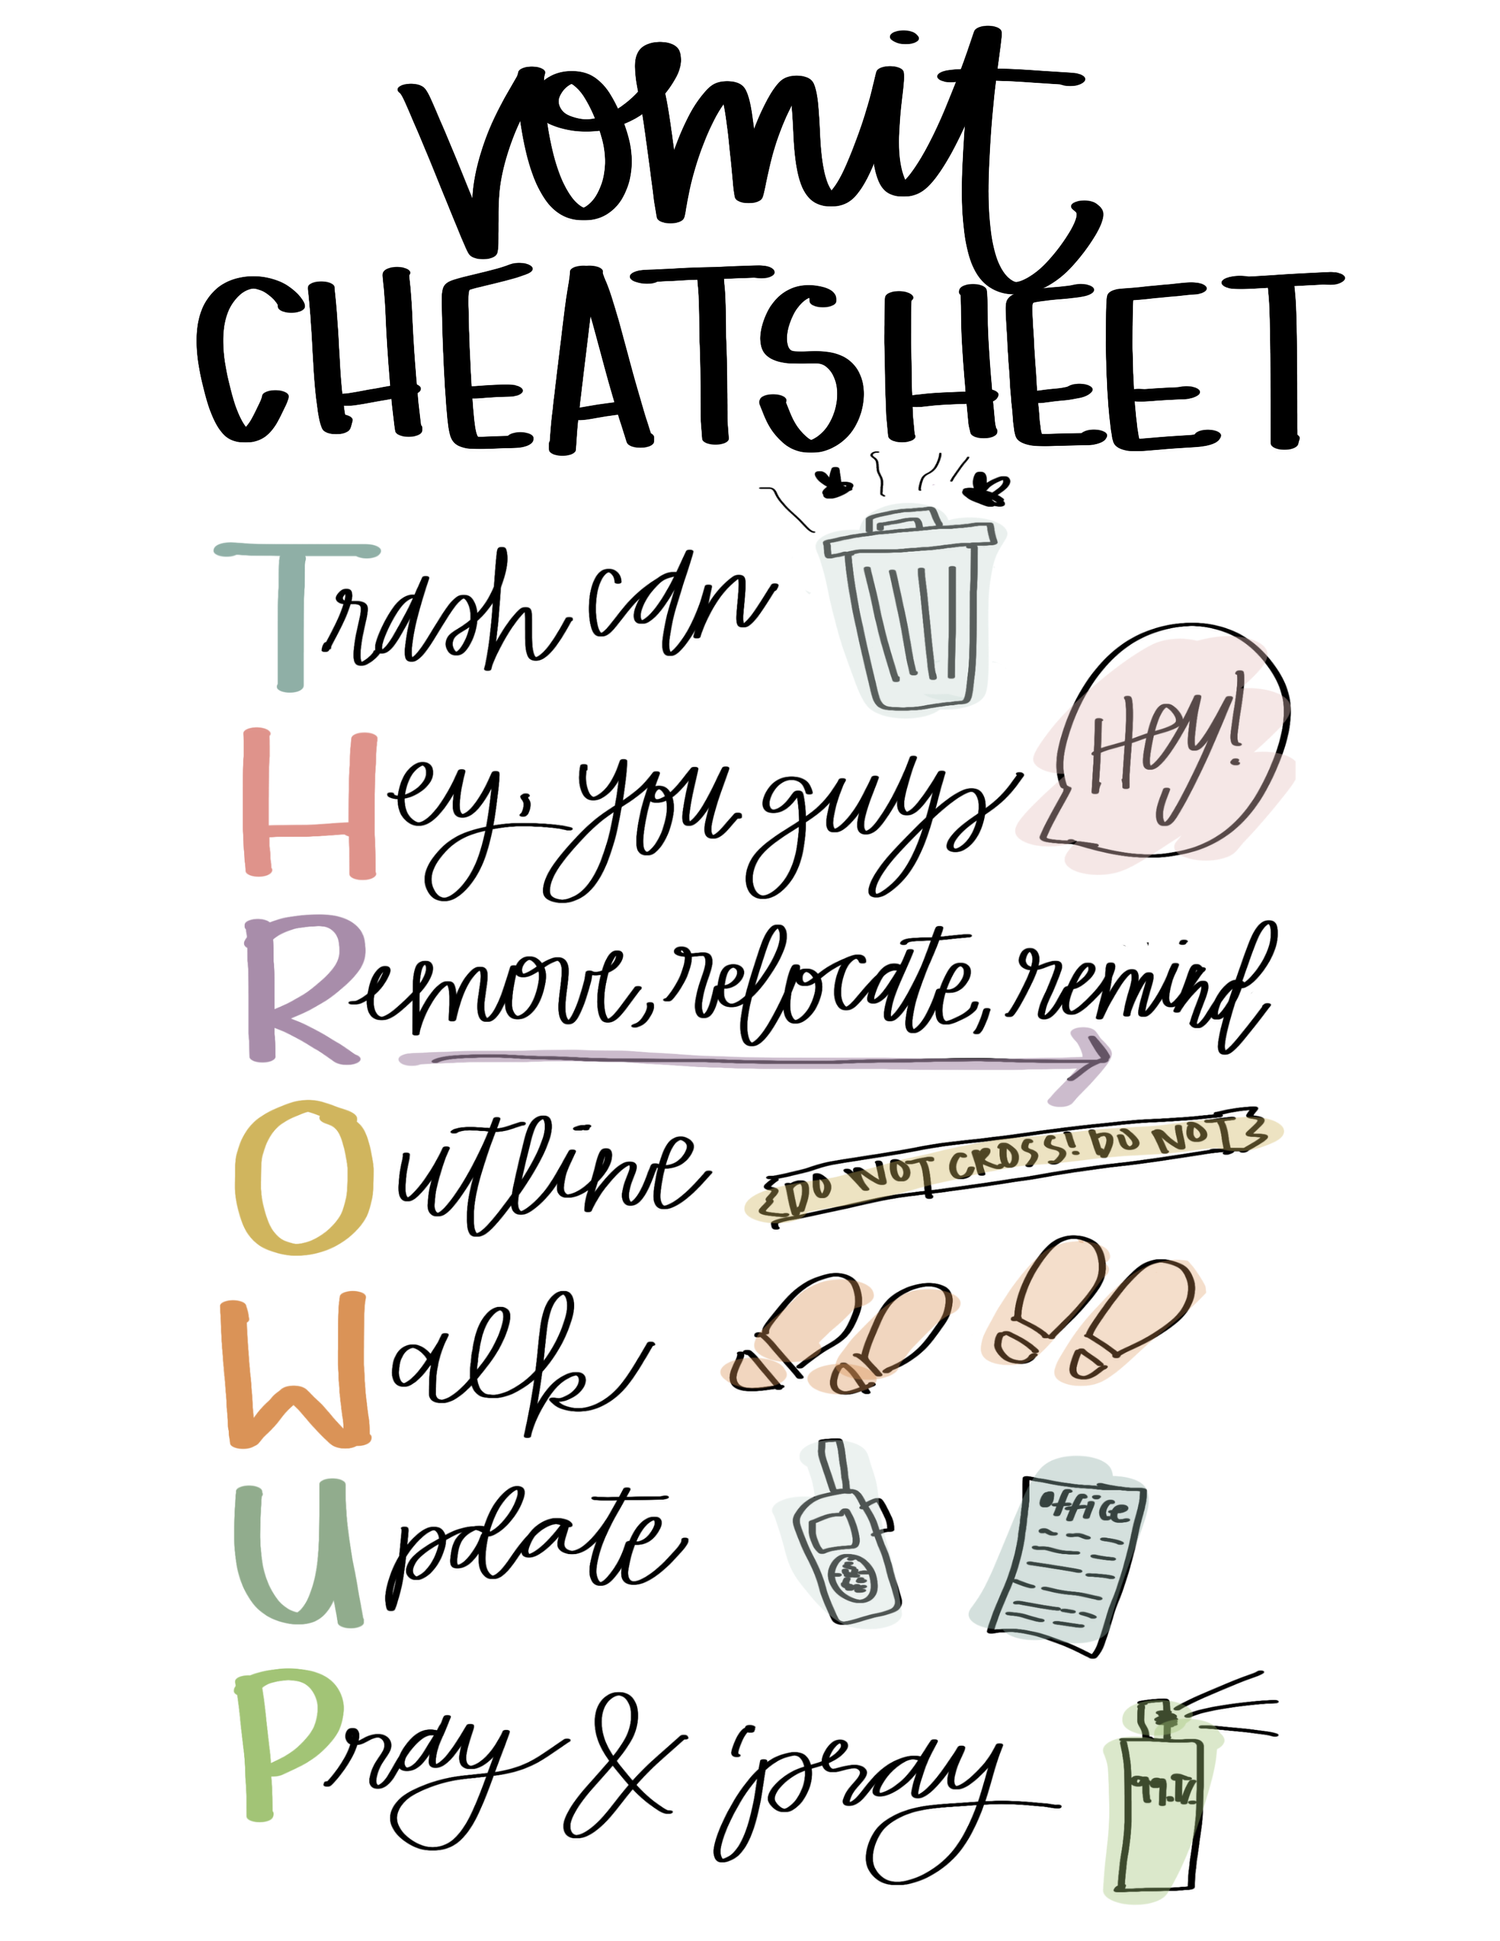 vomit
CHEATSHEET
Trash can
Hey!
Hey, you guys
Remove, relocate, remind
Outline
DO NOT CROSS! DO NOT
Walk
Update
office
Pray & 'pray